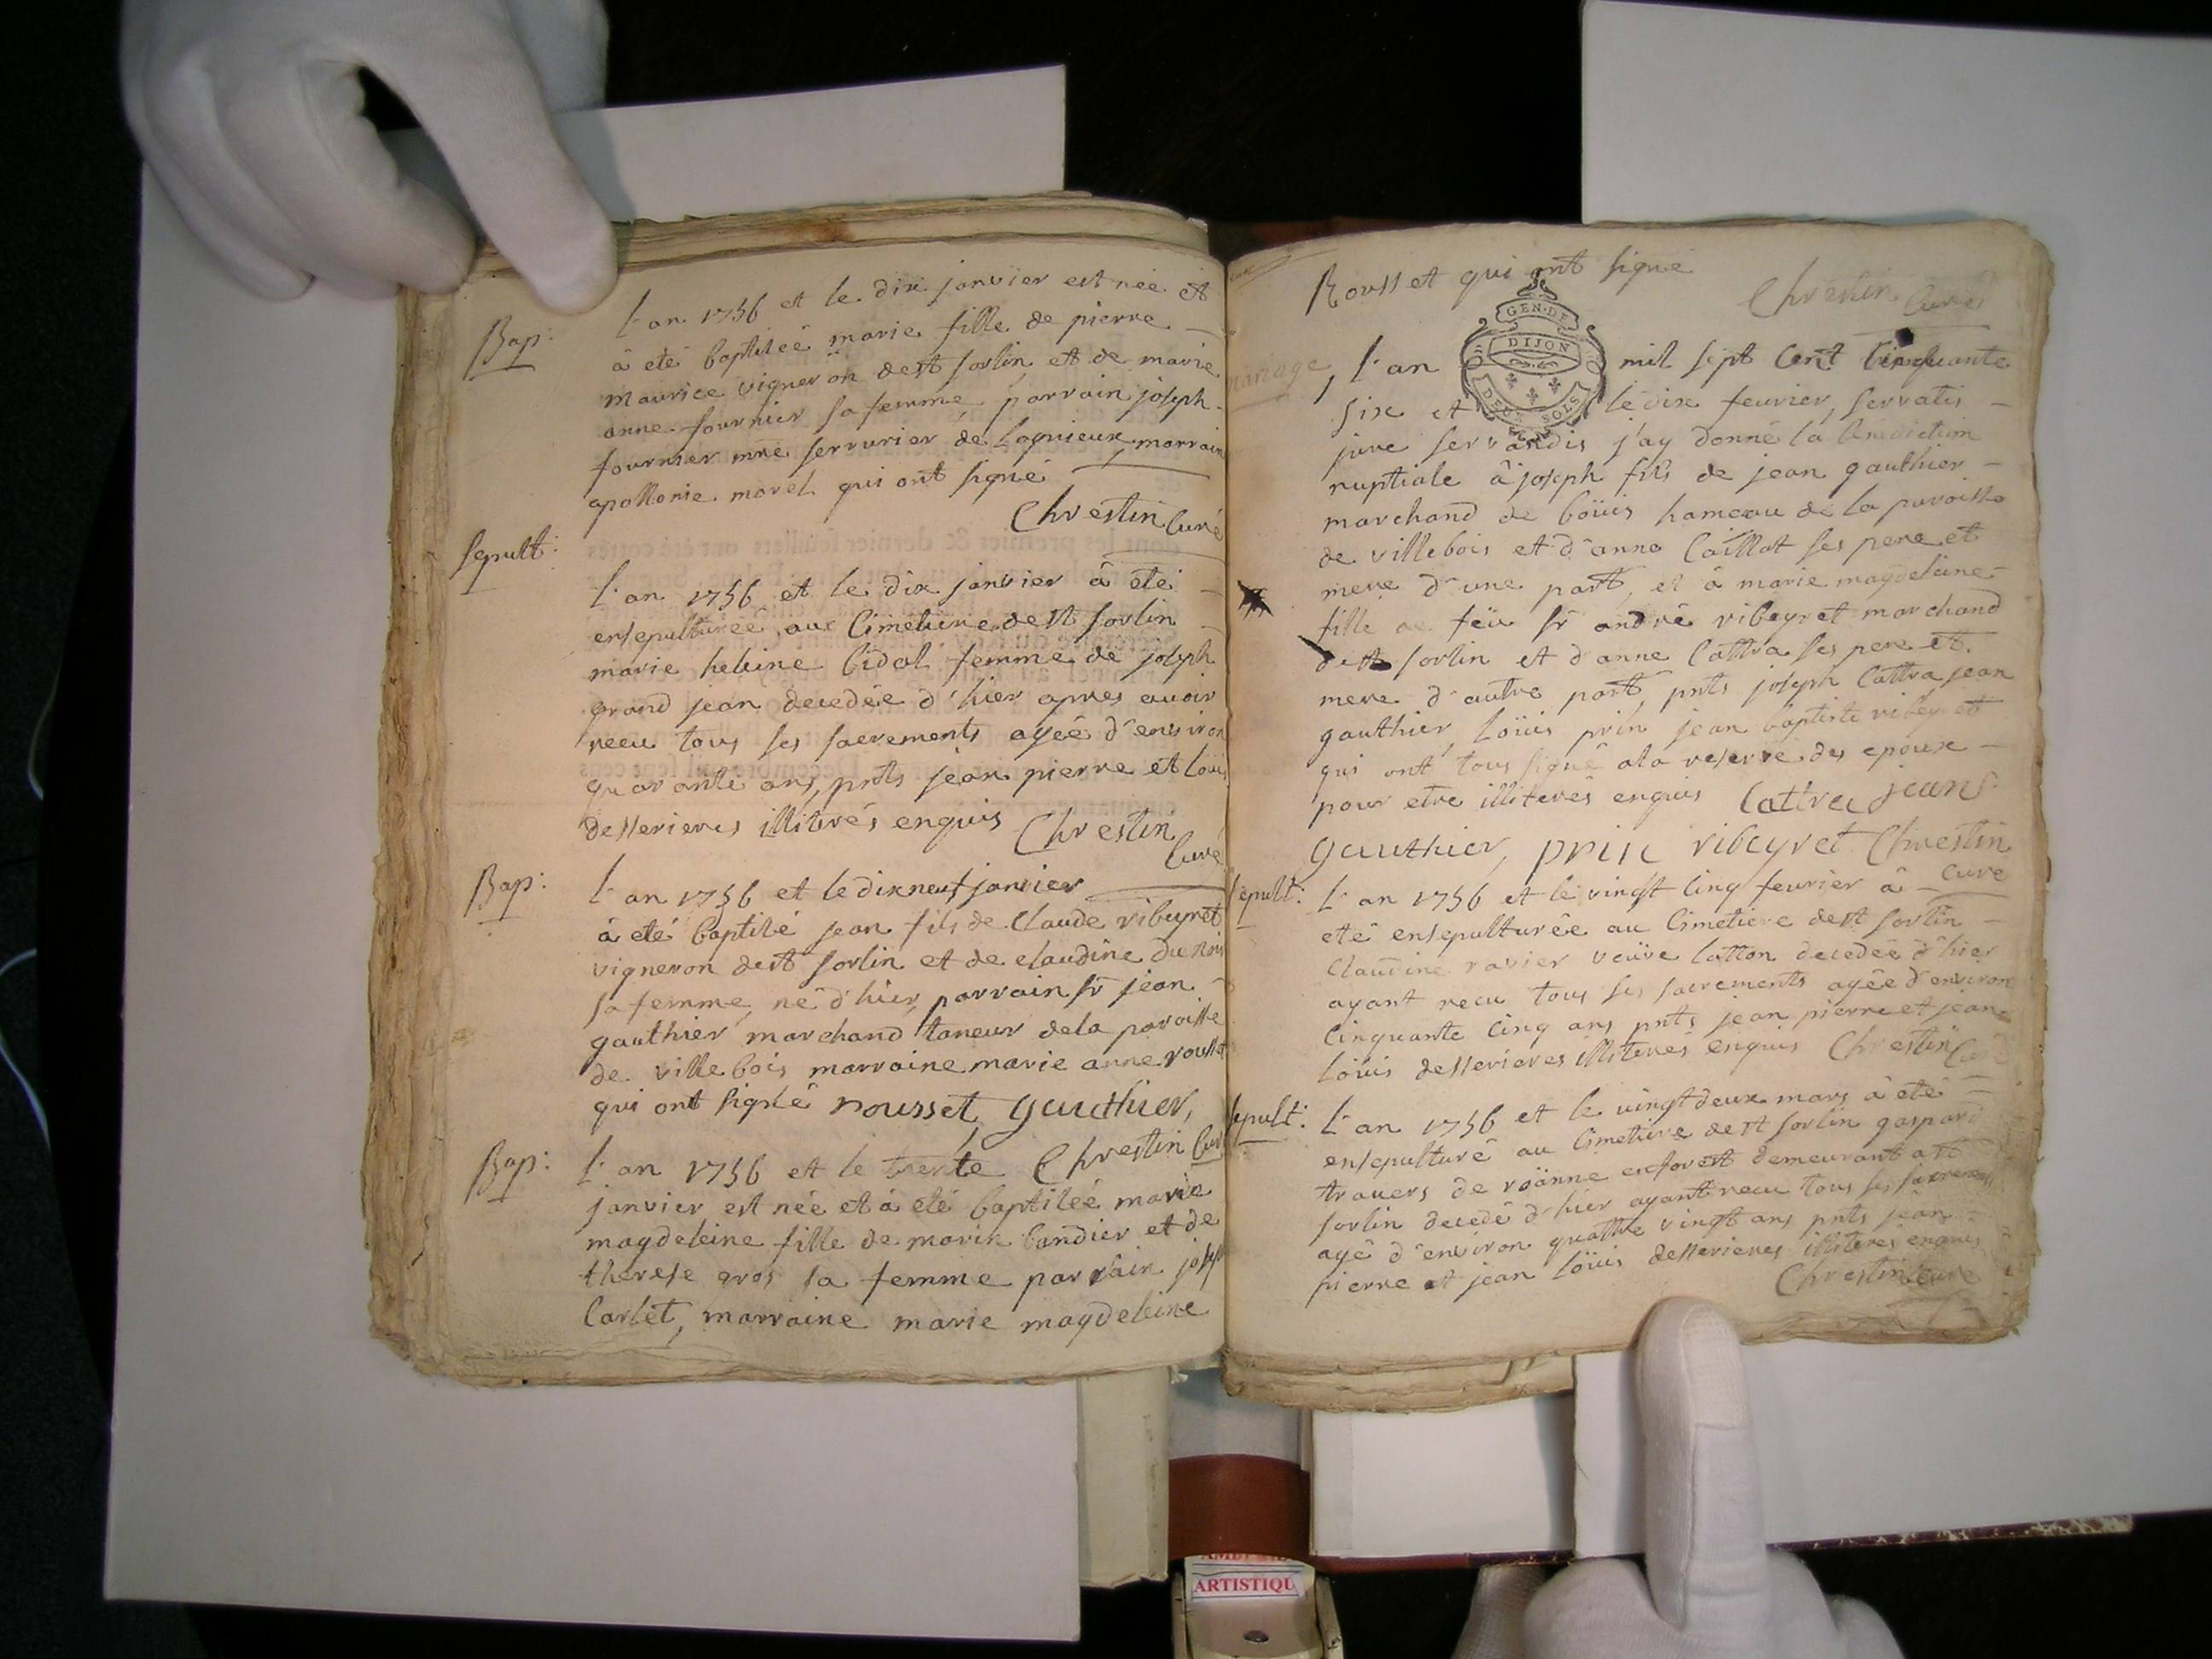 Bap:
L'an 1756 et le dix janvier est née et
à eté baptiseé marie fille de pierre
maurice vigneron de st sorlin et de marie
anne fournier sa femme, parrain joseph
fournier mre serrurier de Lagnieux, marrain
apollonie morel qui ont signé
Chrestin Curé
Sepult:
L'an 1756 et le dix janvier à eté
ensepulturée au Cimetiere de st sorlin
marie heleine bidal femme de joseph
grand jean decedée d'hier apres avoir
recu tous ses sacrements agée d'environ
quarante ans, pnts jean pierre et Loüis
desserieres illiterés enquis Chrestin
Curé
Bap:
L'an 1756 et le dix neuf janvier
à eté baptisé jean fils de Claude ribeyret
vigneron de st sorlin et de claudine
sa femme, né d'hier, parrain sr jean
gauthier marchand taneur de la paroisse
de villebois marraine marie anne rousset
qui ont signé rousset, gauthier,
Chrestin Curé
Bap:
L'an 1756 et le trente
janvier est née et à eté baptisée marie
magdeleine fille de marin bandier et de
therese gros sa femme parrain joseph
Carlet, marraine marie magdeleine
Rousset qui ont signé
Chrestin Curé
GEN·DE
DIJON
DEUX SOLS
mariage
L'an mil sept Cent Cinquante
six et le dix feurier, servatis
jure servandis j'ay donné la benediction
nuptiale à joseph fils de jean gauthier
marchand de boüis hameau de la paroisse
de villebois et d'anne Caillat ses pere et
mere d'une part, et à marie magdeleine
fille de feu sr andré ribeyret marchand
de st sorlin et d'anne Cattra ses pere et
mere d'autre part, pnts joseph Cattra jean
gauthier, Loüis prin jean baptiste ribeyret
qui ont tous signé a la reserve des epoux
pour etre illiterés enquis Cattra jean
gauthier, prin ribeyret Chrestin
Curé
Sepult:
L'an 1756 et le vingt Cinq feurier à
eté ensepulturée au Cimetiere de st sorlin
Claudine ravier veuve Catton decedée d'hier
ayant recu tous ses sacrements agée d'environ
Cinquante Cinq ans pnts jean pierre et jean
Loüis desserieres illiterés enquis Chrestin Curé
Sepult:
L'an 1756 et le vingt deux mars à eté
ensepulturé au Cimetiere de st sorlin gaspard
travers de roänne en forest demeurant a st
sorlin decedé d'hier ayant recu tous ses sacrements
agé d'environ quattre vingt ans pnts jean
pierre et jean Loüis desserieres illiterés enquis
Chrestin Curé
ARTISTIQU